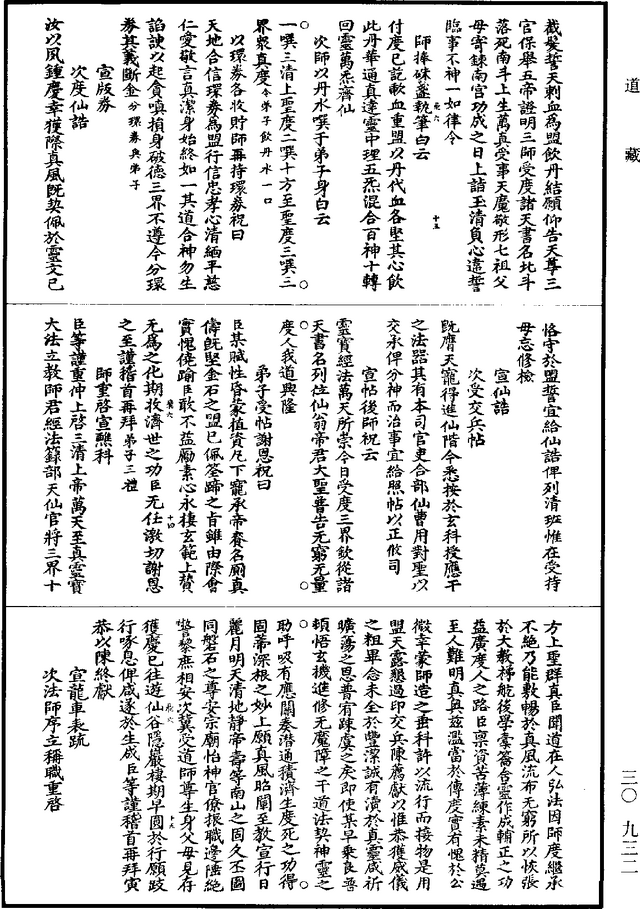 道藏
三〇 九三二
截髮誓天刺血為盟飲丹結願仰告天尊三
官保舉五帝證明三師受度諸天書名北斗
落死南斗上生萬真受事天魔敬形七祖父
母寄錄南宮功成之日上詣玉清負心違誓
臨事不神一如律令
師捧硃盞執筆白云
付度已訖歃血重盟以丹代血各堅其心飲
此丹華通真達靈中理五炁混合百神十轉
回靈萬炁齊仙
次師以丹水噀于弟子身白云
一噀三清上聖度二噀十方至聖度三噀三
界眾真度令弟子飲丹水一口
以環券各收貯師再持環券祝曰
天地合信環券為盟行信忠孝心清緬平慈
仁愛敬言真潔身始終如一其道合神勿生
諂諛以起貪嗔損身破德三界不遵今分環
券其義斷金分環券與弟子
宣版券
次度仙誥
汝以夙鍾慶幸獲際真風既契佩於靈文已
恪守於盟誓宜給仙誥俾列清班惟在受持
毋忘修檢
宣仙誥
次受交兵帖
既膺天寵得進仙階今悉按於玄科授應干
之法器其有本司官吏合部仙曹用對聖以
交承俾分神而治事宜給照帖以正攸司
宣帖後師祝云
靈寶經法萬天所崇今日受度三界欽從諸
天書名列位仙翁帝君大聖普告无窮无量
度人我道興隆
弟子受帖謝恩祝曰
臣某賦性昏蒙植資凡下寵承帝眷名廁真
儔既堅金石之盟已佩筌蹄之旨雖由際會
實愧僥踰臣敢不益勵素心永棲玄範上贊
无為之化期救濟世之功臣无任激切謝恩
之至謹稽首再拜弟子三禮
師重啓宣醮科
臣等謹重沖上啓三清上帝萬天至真靈寶
大法立教師君經法籙部天仙官將三界十
方上聖群真臣聞道在人弘法因師度繼承
不絕乃能敷暢於真風流布无窮所以恢張
於大教梯航後學橐籥含靈作成輔正之功
益廣度人之路臣稟資苦薄練素未精莫遇
至人難明真典茲濫當於傳度實有愧於公
徵幸蒙師造之垂科許以流行而接物是用
盟天露懇過印交兵陳薦獻以惟恭獲感儀
之粗畢念未全於豐潔誠有瀆於真靈咸祈
曠蕩之恩普宥疎虞之戾即使某早乘良晉
頓悟玄機進修无魔障之干道法契神靈之
助呼吸有應關奏潛通積濟生度死之功得
固蒂深根之妙上願真風昭闡至教宣行日
麗月明天清地靜帝壽等南山之固久丕圖
同磐石之尊安宗廟怡神官僚振職邊陲絕
警黎庶相安次冀受道師尊生身父母見存
獲慶已往遊仙谷隱巖棲期早圓於行願跂
行喙息俾咸遂於生成臣等謹稽首再拜寅
恭以陳終獻
宣龍車表疏
次法師序立稱職重啓